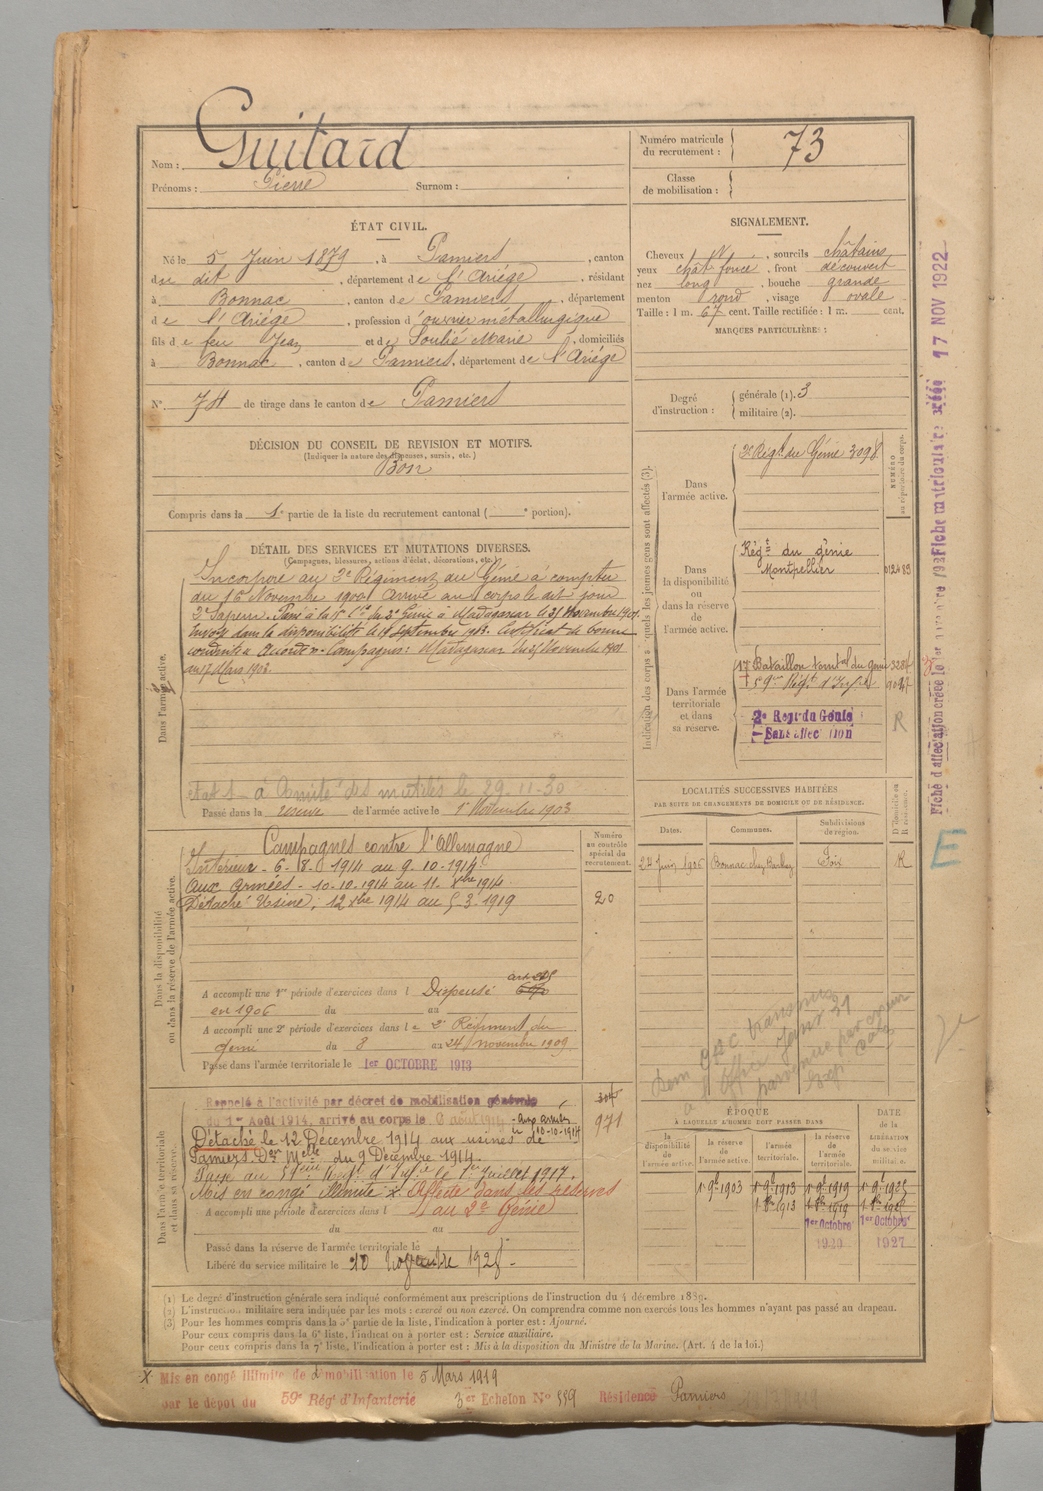 Nom : Guitard
Prénoms : Pierre Surnom :
Numéro matricule du recrutement : 73
Classe de mobilisation :
ÉTAT CIVIL.
Né le 5 Juin 1879, à Pamiers, canton
du dit, département de l'Ariège, résidant
à Bonnac, canton de Pamiers, département
de l'Ariège, profession d'ouvrier métallurgique
fils de feu Jean et de Soulié Marie, domiciliés
à Bonnac, canton de Pamiers, département de l'Ariège
N° 74 de tirage dans le canton de Pamiers
SIGNALEMENT.
Cheveux N, sourcils châtains
yeux chât foncé, front découvert
nez long, bouche grande
menton rond, visage ovale
Taille : 1 m. 67 cent. Taille rectifiée : 1 m. cent.
MARQUES PARTICULIÈRES :
Degré d'instruction : générale (1). 3
militaire (2).
DÉCISION DU CONSEIL DE REVISION ET MOTIFS.
(Indiquer la nature des dispenses, sursis, etc.)
Bon
Compris dans la 1e partie de la liste du recrutement cantonal ( e portion).
DÉTAIL DES SERVICES ET MUTATIONS DIVERSES.
(Campagnes, blessures, actions d'éclat, décorations, etc.)
Dans l'armée active.
Incorporé au 2e Régiment du Génie à compter
du 16 Novembre 1900. Arrivé au corps le dit jour
2e Sapeur. Passé à la Cie du 2e Génie à Madagascar le 25 Novembre 1901.
Envoyé dans la disponibilité le 19 Septembre 1903. Certificat de bonne
conduite Accordé. Campagnes: Madagascar du 25 Novembre 1901
au 17 Mars 1903.
à Comité des mutilés le 29-11-30
Passé dans la réserve de l'armée active le 1er Novembre 1903
Indication des corps auxquels les jeunes gens sont affectés (3).
NUMÉRO au répertoire du corps.
Dans l'armée active.
2e Régt du Génie 3098
Dans la disponibilité ou dans la réserve de l'armée active.
Régt du génie
Montpellier 012489
Dans l'armée territoriale et dans sa réserve.
17 Bataillon territal du génie
59me Régt d'Infie
2e Regt du Génie
Sans affectation
R
Dans la disponibilité ou dans la réserve de l'armée active.
Campagnes contre l'Allemagne
Intérieur - 6-8-1914 au 9-10-1914
Aux Armées - 10-10-1914 au 11 Xbre 1914
Détaché Usine, 12 Xbre 1914 au 5-3-1919
Numéro au contrôle spécial du recrutement.
20
A accompli une 1re période d'exercices dans l Dispensé
en 1906 du au
A accompli une 2e période d'exercices dans le 2e Régiment du
génie du 8 au 24 novembre 1909
Passé dans l'armée territoriale le 1er OCTOBRE 1913
LOCALITÉS SUCCESSIVES HABITÉES
PAR SUITE DE CHANGEMENTS DE DOMICILE OU DE RÉSIDENCE.
Dates. Communes. Subdivisions de région. D domicile ou R résidence.
24 Juin 1906 Bonnac Foix R
Dans l'armée territoriale et dans sa réserve.
Rappelé à l'activité par décret de mobilisation générale
du 1er Août 1914, arrivé au corps le 6 août 1914 - aux armées
le 10-10-1914
971
Détaché le 12 Décembre 1914 aux usines de
Pamiers Don Melle du 9 Décembre 1914.
Passé au 59ème Régt d'Infie le 1er Juillet 1917.
Mis en congé illimité X Affecté dans les réserves
au 2e Génie
A accompli une période d'exercices dans l
du au
Passé dans la réserve de l'armée territoriale le
Libéré du service militaire le 10 novembre 1928.
ÉPOQUE
À LAQUELLE L'HOMME DOIT PASSER DANS
la disponibilité de l'armée active. la réserve de l'armée active. l'armée territoriale. la réserve de l'armée territoriale.
DATE DE LA LIBÉRATION DU service militaire.
1er 9bre 1903 1er 9bre 1913 1er 9bre 1919
1er 8bre 1913 1er 8bre 1919
1er Octobre 1er Octobre
1920 1927
(1) Le degré d'instruction générale sera indiqué conformément aux prescriptions de l'instruction du 4 décembre 1889.
(2) L'instruction militaire sera indiquée par les mots : exercé ou non exercé. On comprendra comme non exercés tous les hommes n'ayant pas passé au drapeau.
(3) Pour les hommes compris dans la 5e partie de la liste, l'indication à porter est : Ajourné.
Pour ceux compris dans la 6e liste, l'indication à porter est : Service auxiliaire.
Pour ceux compris dans la 7e liste, l'indication à porter est : Mis à la disposition du Ministre de la Marine. (Art. 4 de la loi.)
X Mis en congé illimité de démobilisation le 5 Mars 1919
par le dépôt du 59e Rég' d'Infanterie 3er Echelon N° 559 Résidence Pamiers
17 NOV 1922
E